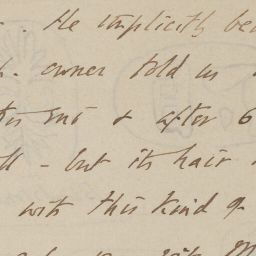 . He implicitly be
. owner told us
& after 6
ll - but its hair
with this kind of